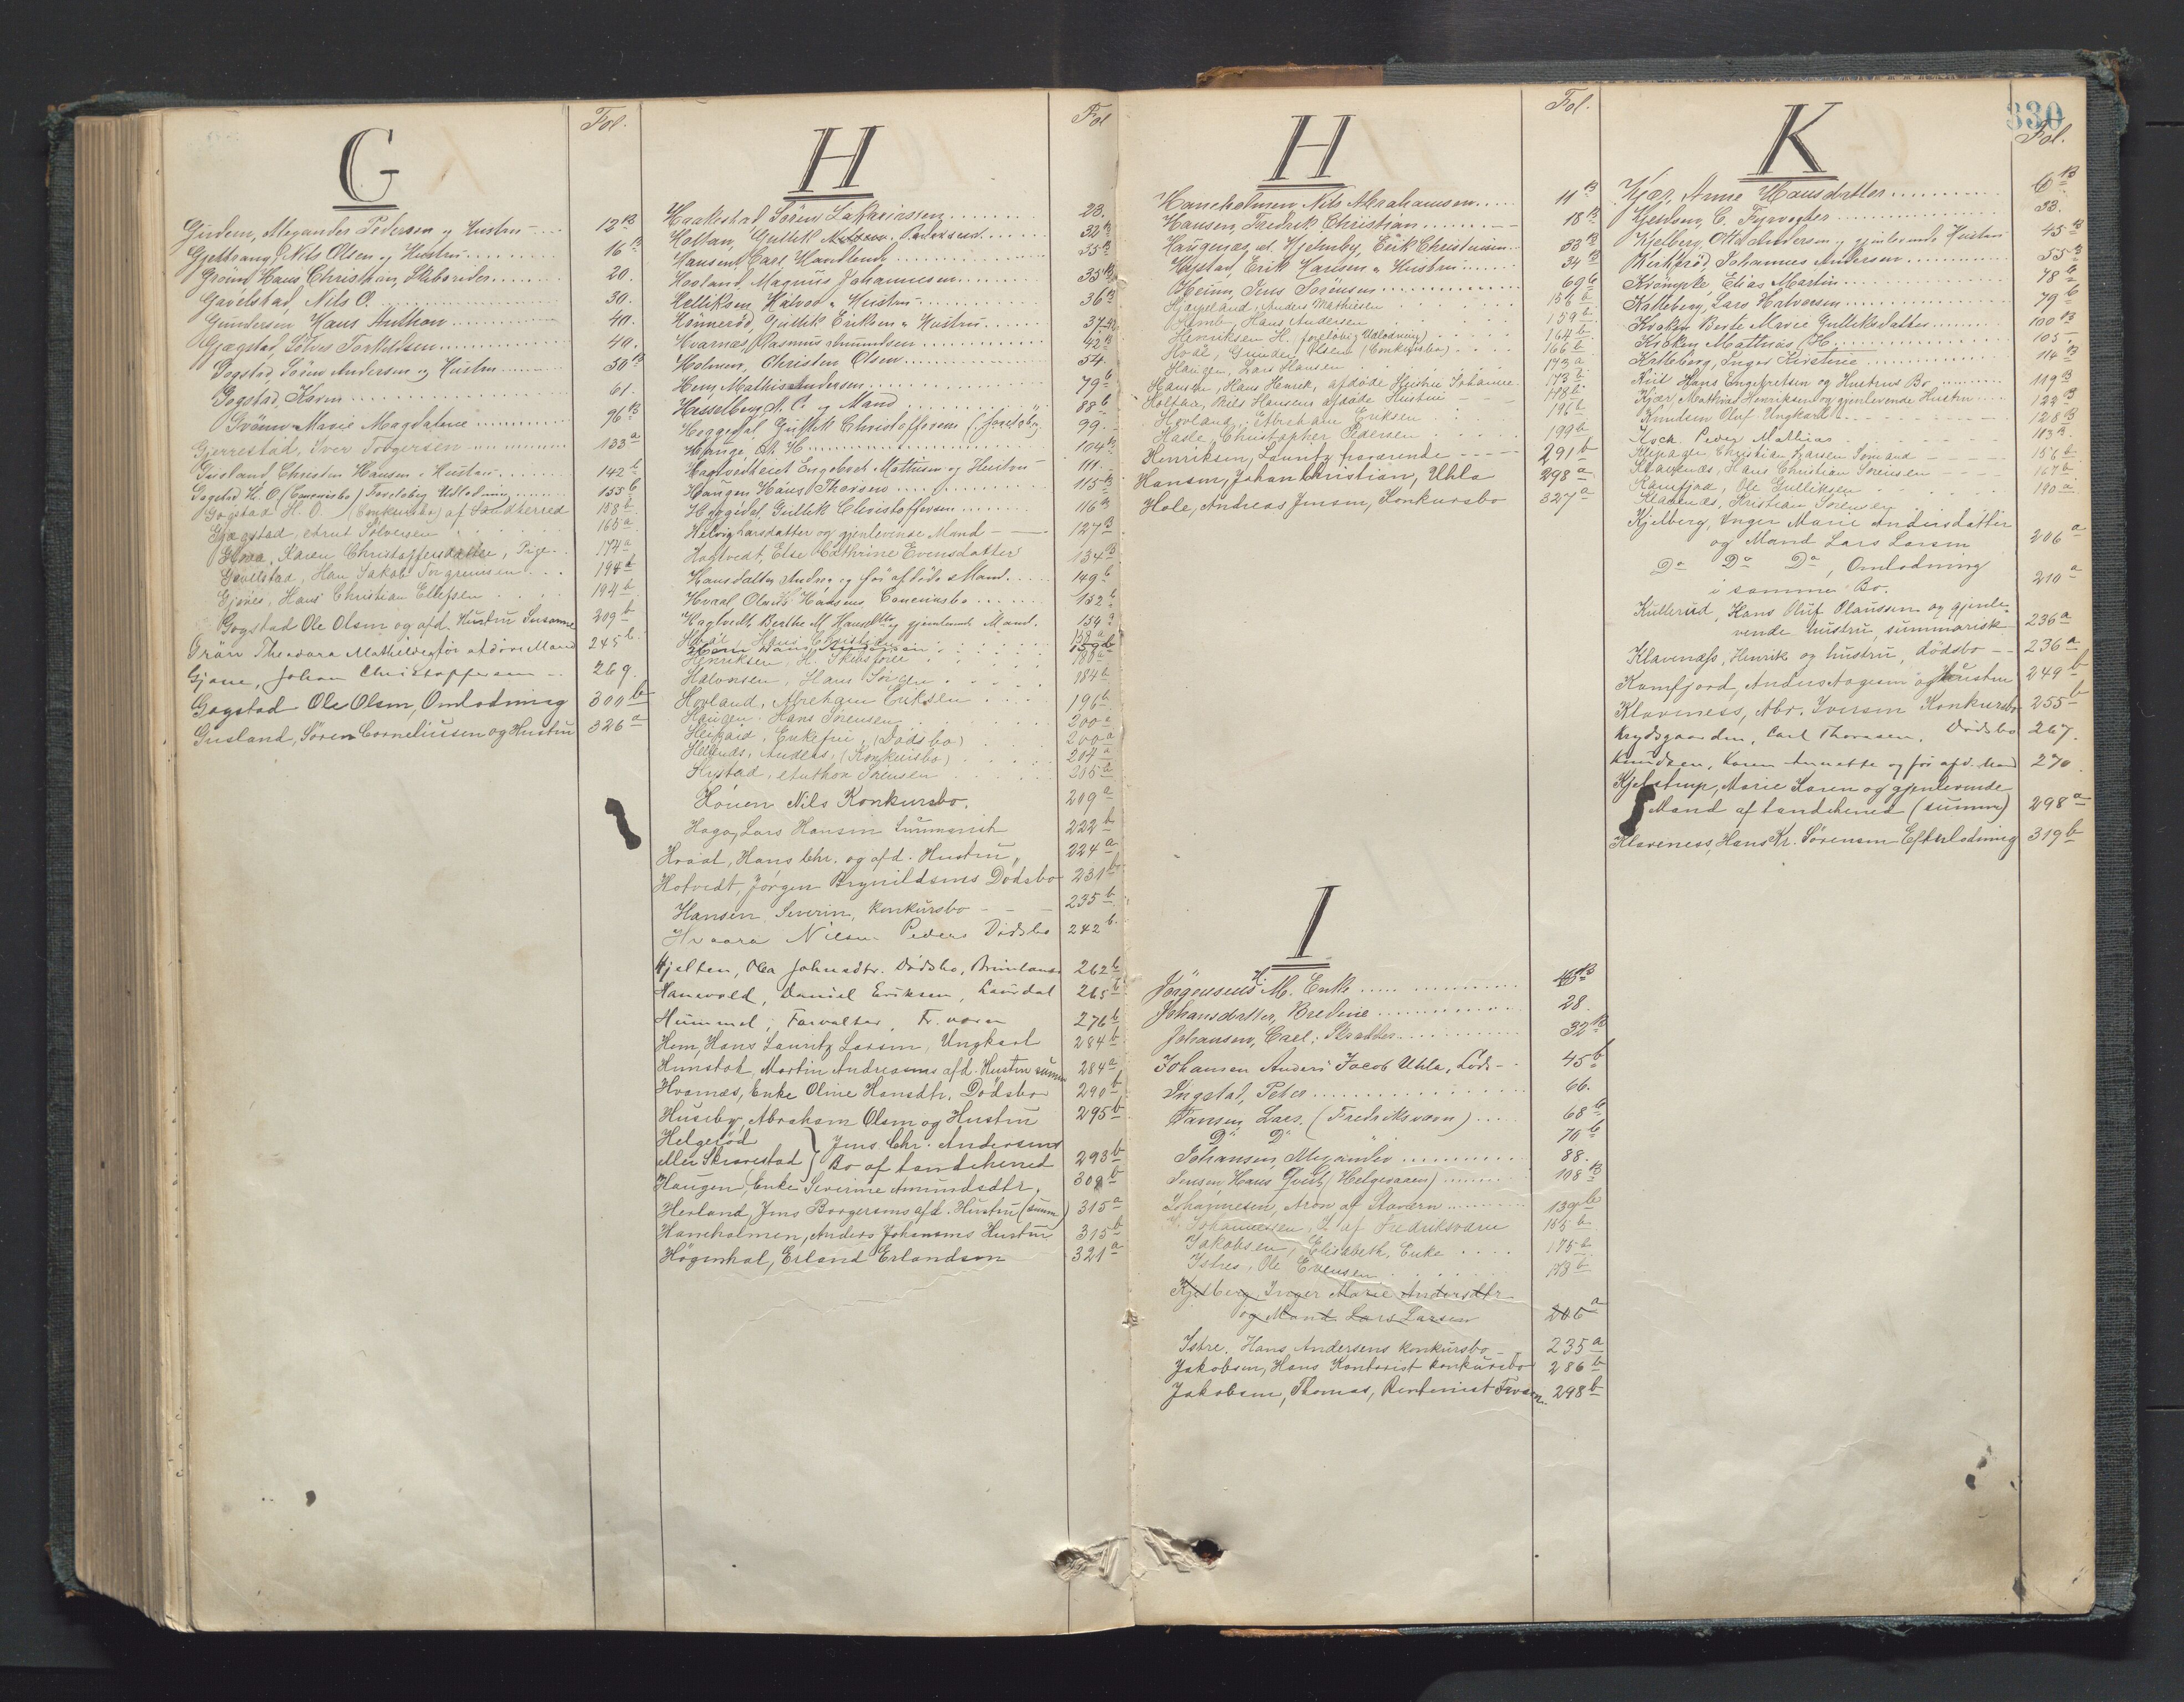 G
Fol.
Gjerdem, Alexander Pedersen og Hustru 12 B
Gjettrang, Nils Olsen og Hustru 16 B
Grönn, Hans Christian, Skibsreder 20.
Gavelstad, Nils O. 30.
Gundersen, Hans Anthon 40.
Gjægstad, Sölver Torkildsen 40.
Gogstad, Sören Andersen og Hustru 50 B
Gogstad, Karen 61.
Grönn Marie Magdalene 96 B
Gjerrestad, Iver Torgersen 133 a
Gusland, Christen Hansen & Hustru 142 b
Gogstad H. O. (Concursbo) Foreløbig Udlodning 155 b
Gogstad H. O. (Konkursbo) af Sandherred 158 b
Gjægstad, Arnt Sølvesen 165 a
Gloa, Karen Christoffersdatter, Pige 174 a
Gavelstad, Han Jakob Torgrimsen 194 b
Gjönes, Hans Christian Ellefsen 194 b
Gogstad Ole Olsen og afd. Hustru Susanne 209 b
Gran Theodora Mathilde og för afdöde Mand 245 b
Gjone, Johan Christoffersen 269.
Gogstad Ole Olsen, Omlodning 300 b
Gusland, Sören Corneliussen og Hustru 326 a
H
Fol
Haakestad, Sören Zakariassen 23.
Holtan, Gullik Pedersens 32 B
Hansen, Carl 35 B
Hovland, Magnus Johannesen 35 B
Helliksen, Halvor & Hustru 36 B
Hönneröd, Gullik Eriksen & Hustru 37
Hvarnæs, Rasmus Amundsen 42 B
Holmen, Christen Olsen 54.
Hem, Mathis Andersen 79 b
Hesselberg, A. C. og Mand 88 b
Heggedal, Gullik Christoffersens (foreløbig) 99.
Hfange, A. H. 104 B
Hagtvedteiet Engebret Mathisen og Hustru 111.
Haugen Hans Thorsen 115 B
Heggedal, Gullik Christoffersen 116 B
Helvig Larsdatter og gjenlevende Mand 127 B
Hogtvedt, Else Cathrine Evensdatter 134 B
Hansdatter Andrea og för afdöde Mand 149 b
Hvaal Olaus Hansens Concursbo 152 b
Hagtvedt, Berthe M. Hansdtr og gjenlevende Mand. 154 a
Hvaal, Hans Christian 158 a
Hem Hans Andersen 159 b
Henriksen, H. Skibsförer 180 a
Halvorsen, Hans Törger 184 b
Hovland, Abraham Eriksen 196 b
Haugen, Hans Sörensen 200 a
Helgaid, Enkefru, (Dödsbo) 200 a
Helgnæs, Anders, (Konkursbo) 204 a
Hystad, Anthon Sörensen 205 a
Höuen Nils Konkursbo. 209 a
Haga, Lars Hansen Summarisk 222 b
Hvaal, Hans Chr. og afd. Hustru 224 a
Hotvedt, Jörgen Brynildsens Dödsbo 231 b
Hansen, Severin, konkursbo 235 b
Hvaara Nilsen Peders Dödsbo 242 b.
Hjelten, Olea Johnsdtr. Dödsbo, Brunlanes 262 b
Hanevold, Daniel Eriksen, Laurdal 265 b
Hummel, Forvalter, Fr.værn 276 b
Hem, Hans Lauritz Larsen, Ungkarl 284 b
Hunstok, Martin Andreasens afd. Hustru summ 284 a
Hvarnæs, Enke Oline Hansdtr. Dödsbo 290 b
Huseby, Abraham Olsen og Hustru 295 b
Helgeröd
eller Skiørestad } Jens Chr. Andersens
Bo af Sandeherred 293 b
Haugen, Enke Severine Amundsdtr. 308 b
Hovland, Jens Borgersens afd. Hustru (summ) 315 a
Haneholmen, Anders Johansens Hustru 315 b
Högenhal, Erland Erlandsen 321 a
H
Fol.
Haneholmen Nils Abrahamsen 11 B
Hansen, Fredrik Christian 18 B
Haugenæs, ad. Hjelmby, Erik Christensen 33 B
Hystad, Erik Hansen & Hustru 34 B
Heum, Jens Sörensen 69 b
Högeland, Anders Mathiesen 156 b
Hemb, Hans Andersen 159 b
Henriksen H. foreløbig Udlodning) 164 b
Hvaal, Gunder Olsen (Konkursbo) 166 b
Haugen, Lars Hansen 173 a
Hansen, Hans Henrik, afdøde Hustru Johanne 173 b
Holtan, Nils Hansens afdøde Hustru 178 b.
Hovland, Abraham Eriksen 196 b
Hasle, Christopher Pedersen 199 b
Henriksen, Lauritz fraværende 291 b
Hansen, Johan Christian, Uhla 298 a
Hole, Andreas Jensen, Konkursbo 327 a
I
Jörgensens H. M. Enke 16 B
Johansdatter, Bredine 28.
Johansen, Carl, Skrædder 32 B
Johansen Anders Jacob Uhla, Lods 45 b
Ingstad, Peter 66.
Jansen, Lars, (Fredriksværn) 68 b
Do Do 70 b
Johansen, Alexander 88.
Jensen, Hans Qvist, (Helgeraaen) 108 B
Johannesen, Aron af Stavern 139 b
Johannessen, L. af Fredriksværn 165 b
Jakobsen, Elisabeth, Enke 175 b
Istres, Ole Evensen 178 b
Kjelberg, Inger Marie Andersdtr
og Mand Lars Larsen 206 a
Istre, Hans Andersens konkursbo 235 a
Jakobsen, Hans Kontorist konkursbo 286 b
Jakobsen, Thomas, Rentenist Frværn. 298 b
K
330
Fol.
Kjær, Anne Hansdatter 6 B
Gesdom, C. Fyrvogter 33.
Kjelberg, Otto Andersen og gjenlevende Hustru 45 B
Kirkeröd, Johannes Andersen 55 B
Krömpke, Elias Martin 78 b
Kalleberg, Lars Halvorsen 79 b
Kroken, Berte Marie Gulliksdatter 100 B
Kroken, Mathias H. 105.
Kalleberg, Inger Kirstine 114 B
Kiil Hans Engebretsen og Hustrus Bo 119 B
Kjær, Mathias Henriksen og gjenlevende Hustru 122 B
Knudsen Oluf Ungkarl 128 B
Koch, Peder Mathias 113 B.
Klepager, Christian Larsen Sömand 156 b
Klavenæs, Hans Christian Sörensen 167 b
Kamfjod, Ole Gulliksen 190 a
Klavenæs, Kristian Sörensen
Kjelberg, Inger Marie Andersdatter
og Mand Lars Larsen 206 a
Do Do Do, Omlodning
i samme Bo. 210 a
Kullerud, Hans Oluf Olaussen og gjenle-
vende hustru, summarisk 236 a
Klavenæss, Henrik og hustru, dödsbo 236 a
Kamfjord, Anders Aagesen og Hustru 249 b
Klaveness, Abr. Iversen Konkursbo 255 b
Krydsgaarden, Carl Thoresen, Dödsbo 267.
Knudsen, Karen Annette og för afd. Mand 270.
Kjelstrup, Marie Karen og gjenlevende
Mand af Sandeherred (summ) 298 a
Klaveness, Hans Kr. Sörensen Efterlodning 319 b